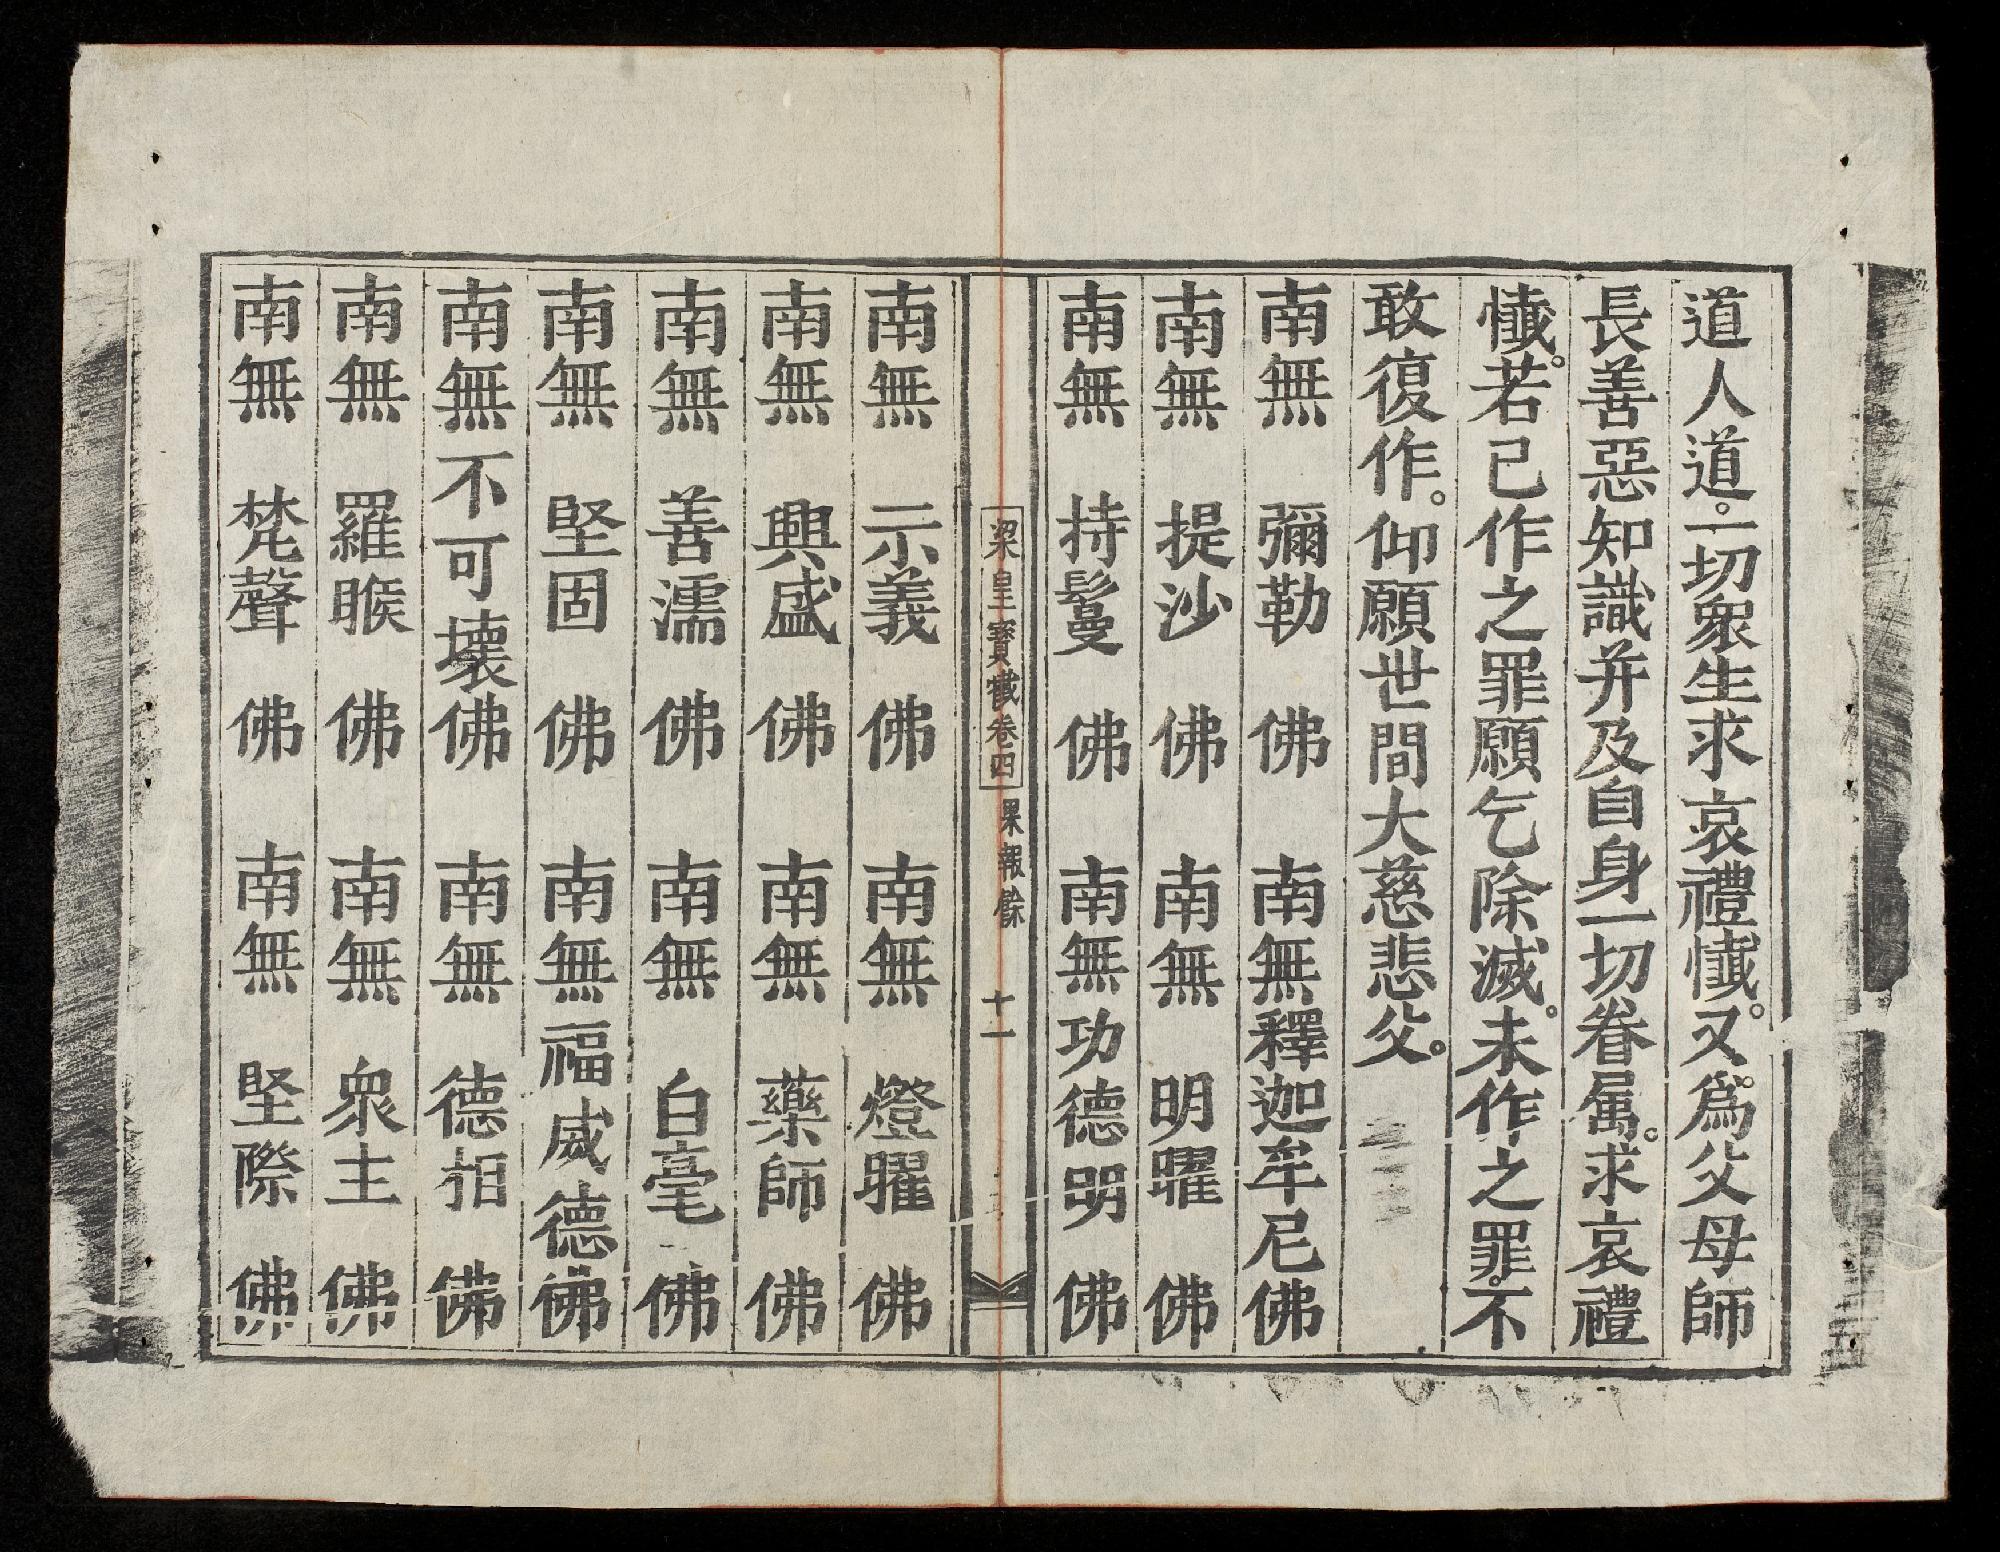 道人道。一切衆生求哀禮懴。又爲父母師
長善惡知識并及自身一切眷属。求哀禮
懴。若已作之罪願乞除滅。未作之罪。不
敢復作。仰願世間大慈悲父。
南無彌勒佛 南無釋迦牟尼佛
南無提沙佛 南無明曜佛
南無持鬘佛 南無功德明佛
梁皇寶懴卷四 果報餘 十一
南無示義佛 南無燈曜佛
南無興盛佛 南無藥師佛
南無善濡佛 南無白毫佛
南無堅固佛 南無福威德佛
南無不可壞佛 南無德相佛
南無羅睺佛 南無衆主佛
南無梵聲佛 南無堅際佛